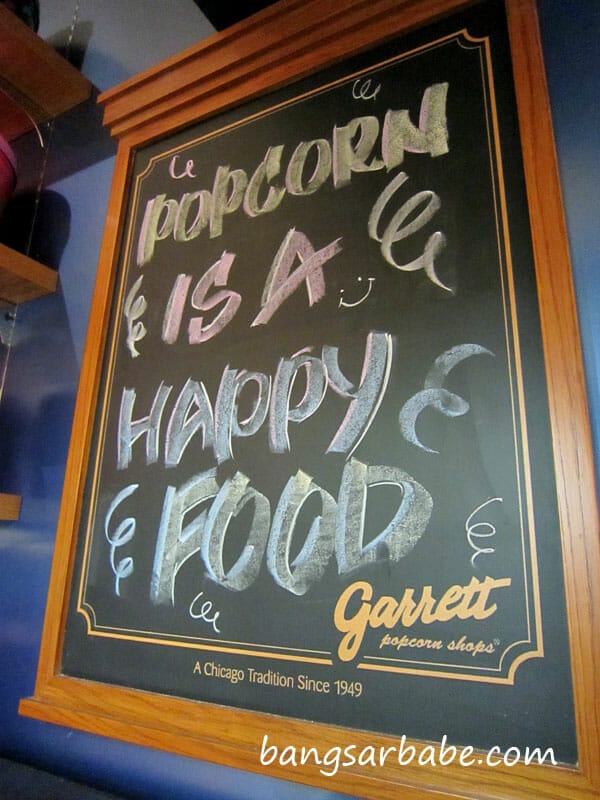 POPCORN
IS A
HAPPY
FOOD
Garrett
popcorn shops®
A Chicago Tradition Since 1949
bangsarbabe.com